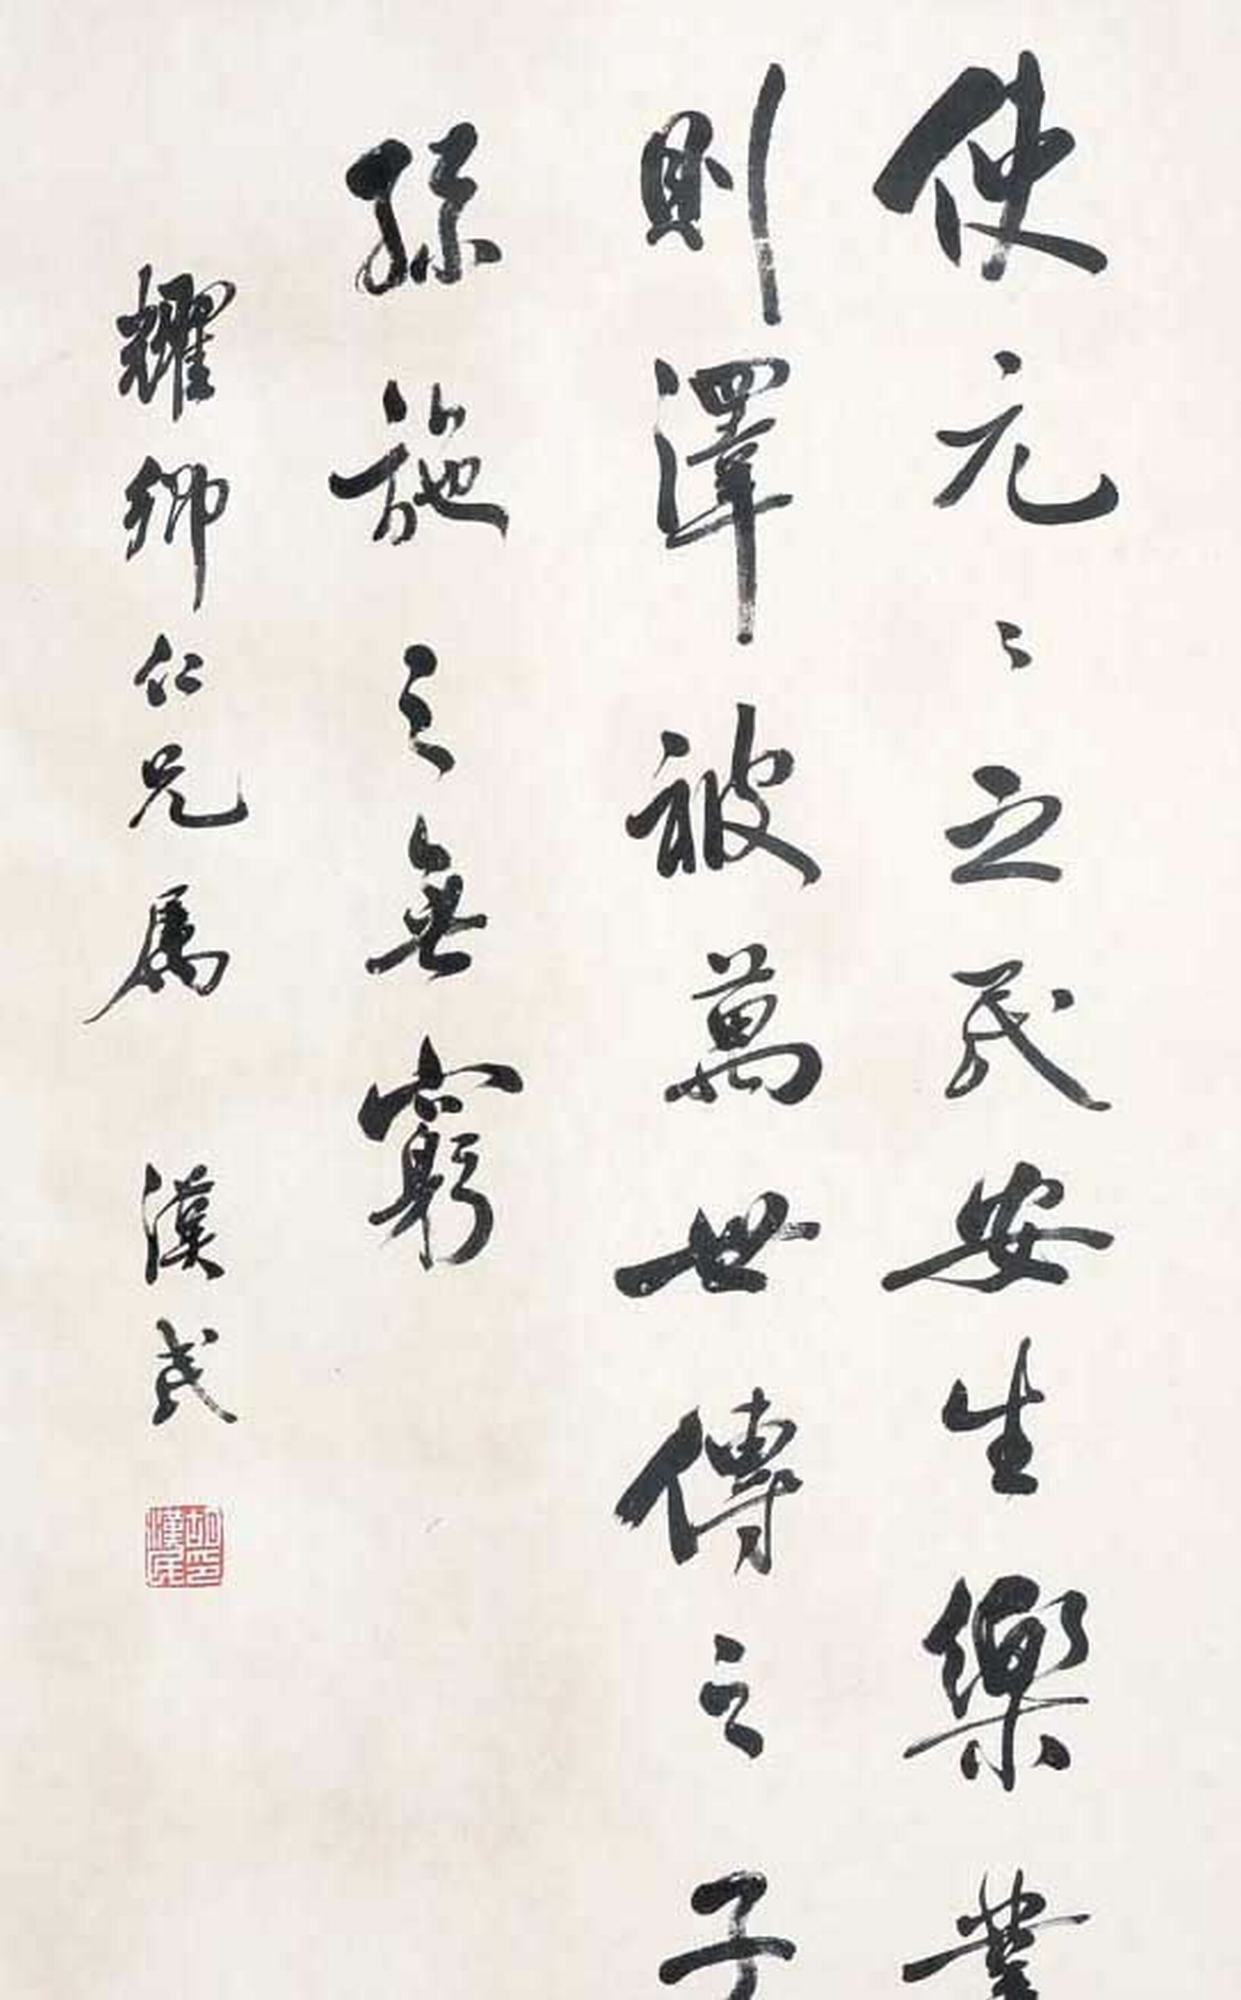 使元々之民安生樂業
則澤被萬世傳之子
孫施之無窮
耀卿仁兄属 漢民
胡漢民印